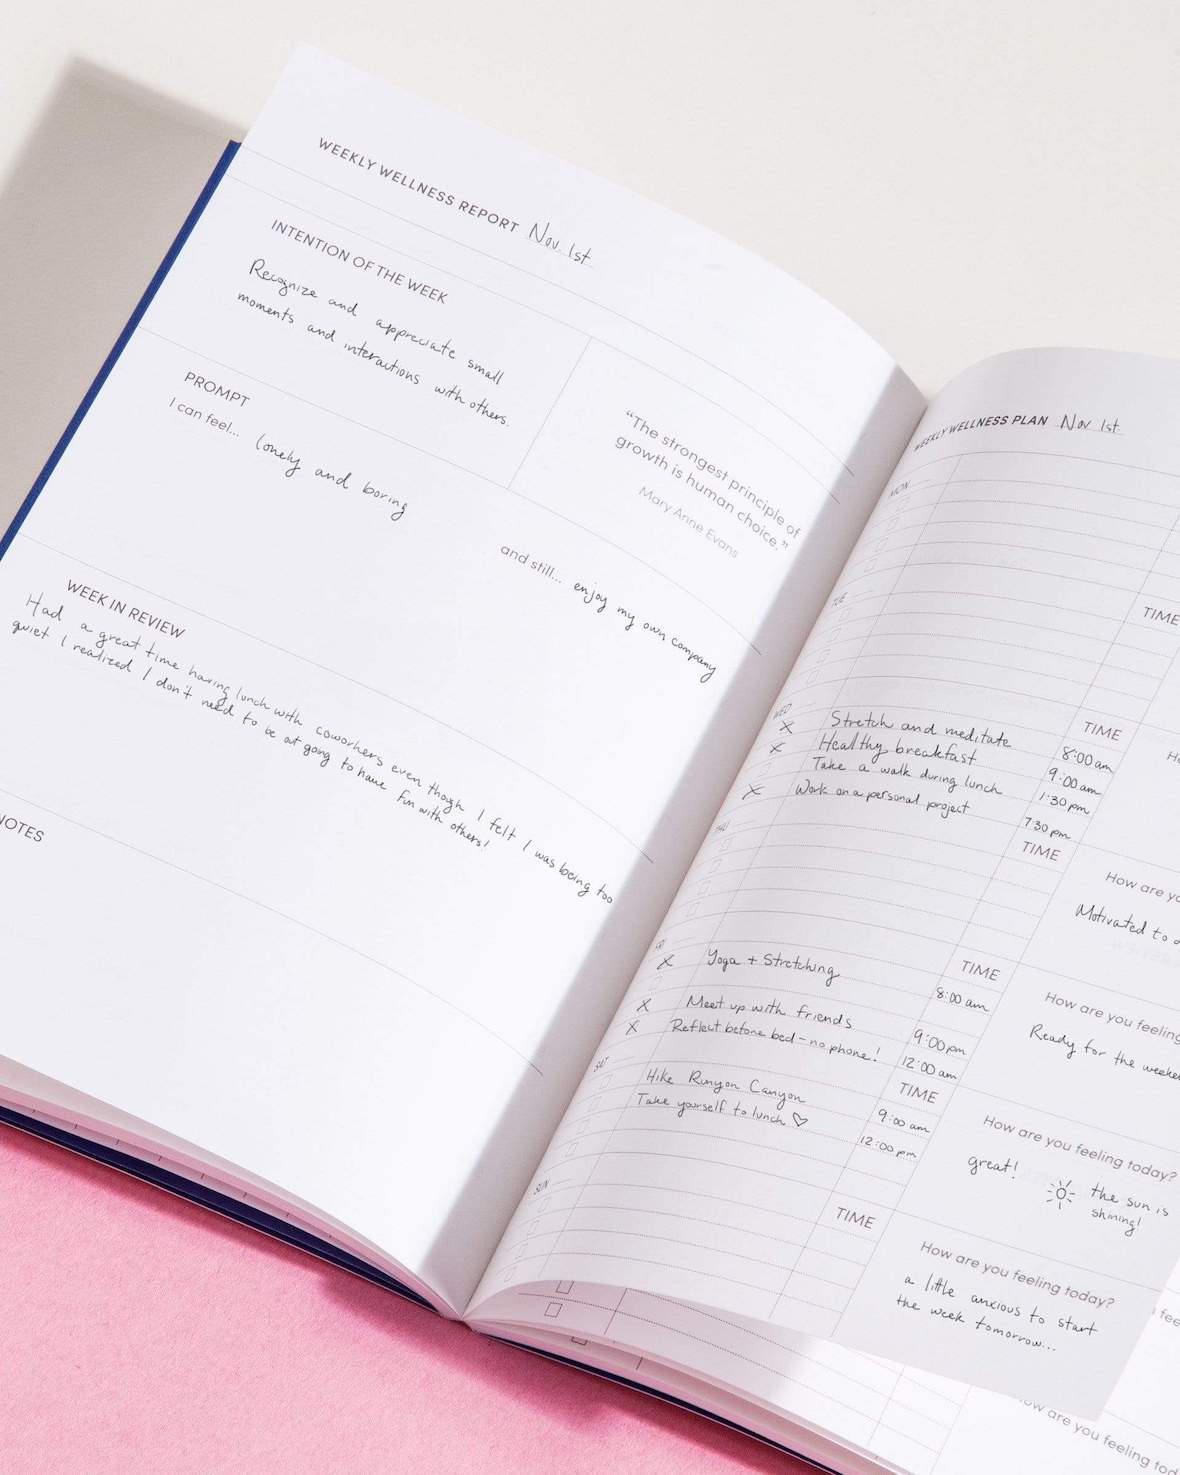 WEEKLY WELLNESS REPORT Nov 1st
INTENTION OF THE WEEK
Recognize and appreciate small
moments and interactions with others.
"The strongest principle of
growth is human choice."
Mary Anne Evans
PROMPT
I can feel... lonely and boring
and still... enjoy my own company
WEEK IN REVIEW
Had a great time having lunch with coworkers even though I felt I was being too
quiet I realized I don't need to be out going to have fun with others!
NOTES
WEEKLY WELLNESS PLAN Nov 1st
MON
TIME
TUE
TIME
WED
X Stretch and meditate 8:00 am
X Healthy breakfast 9:00 am
Take a walk during lunch 1:30 pm
X Work on a personal project 7:30 pm
THU
TIME
How are
Motivated to
TIME
X Yoga + Stretching 8:00 am
X Meet up with friends 9:00 pm
X Reflect before bed - no phone! 12:00 am
How are you feeling
Ready for the
SAT
TIME
Hike Runyon Canyon 9:00 am
Take yourself to lunch ♡ 12:00 pm
How are you feeling today?
great!
the sun is
shining!
SUN
TIME
How are you feeling today?
a little anxious to start
the week tomorrow...
are you feeling